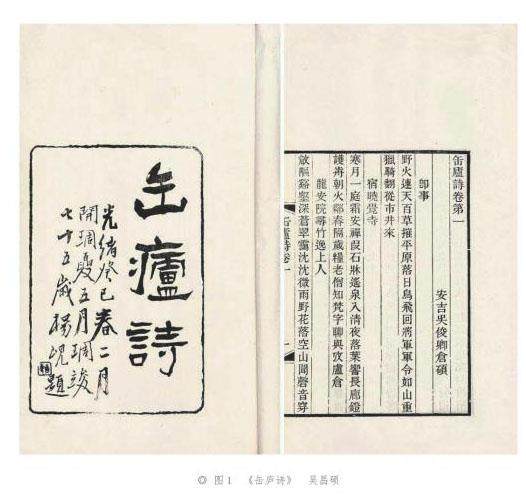 缶廬詩
光緒癸巳春二月
開琱夏五月琱竣
七十五歲楊峴題
缶廬詩卷第一
安吉吳俊卿倉碩
即事
野火連天百草摧平原落日鳥飛回將軍軍令如山重
獵騎翻從市井來
宿曉覺寺
寒月一庭霜安禪叚石牀遙泉入清夜落葉響長廊鐙
護歬朝火鄰舂隔歲糧老僧知梵字聊與攷盧倉
龍安院尋竹逸上人
谿壑深蒼翠靄沈沈微雨野花落空山聞磬音穿
缶廬詩卷一
◎ 图1 《缶庐诗》 吴昌硕